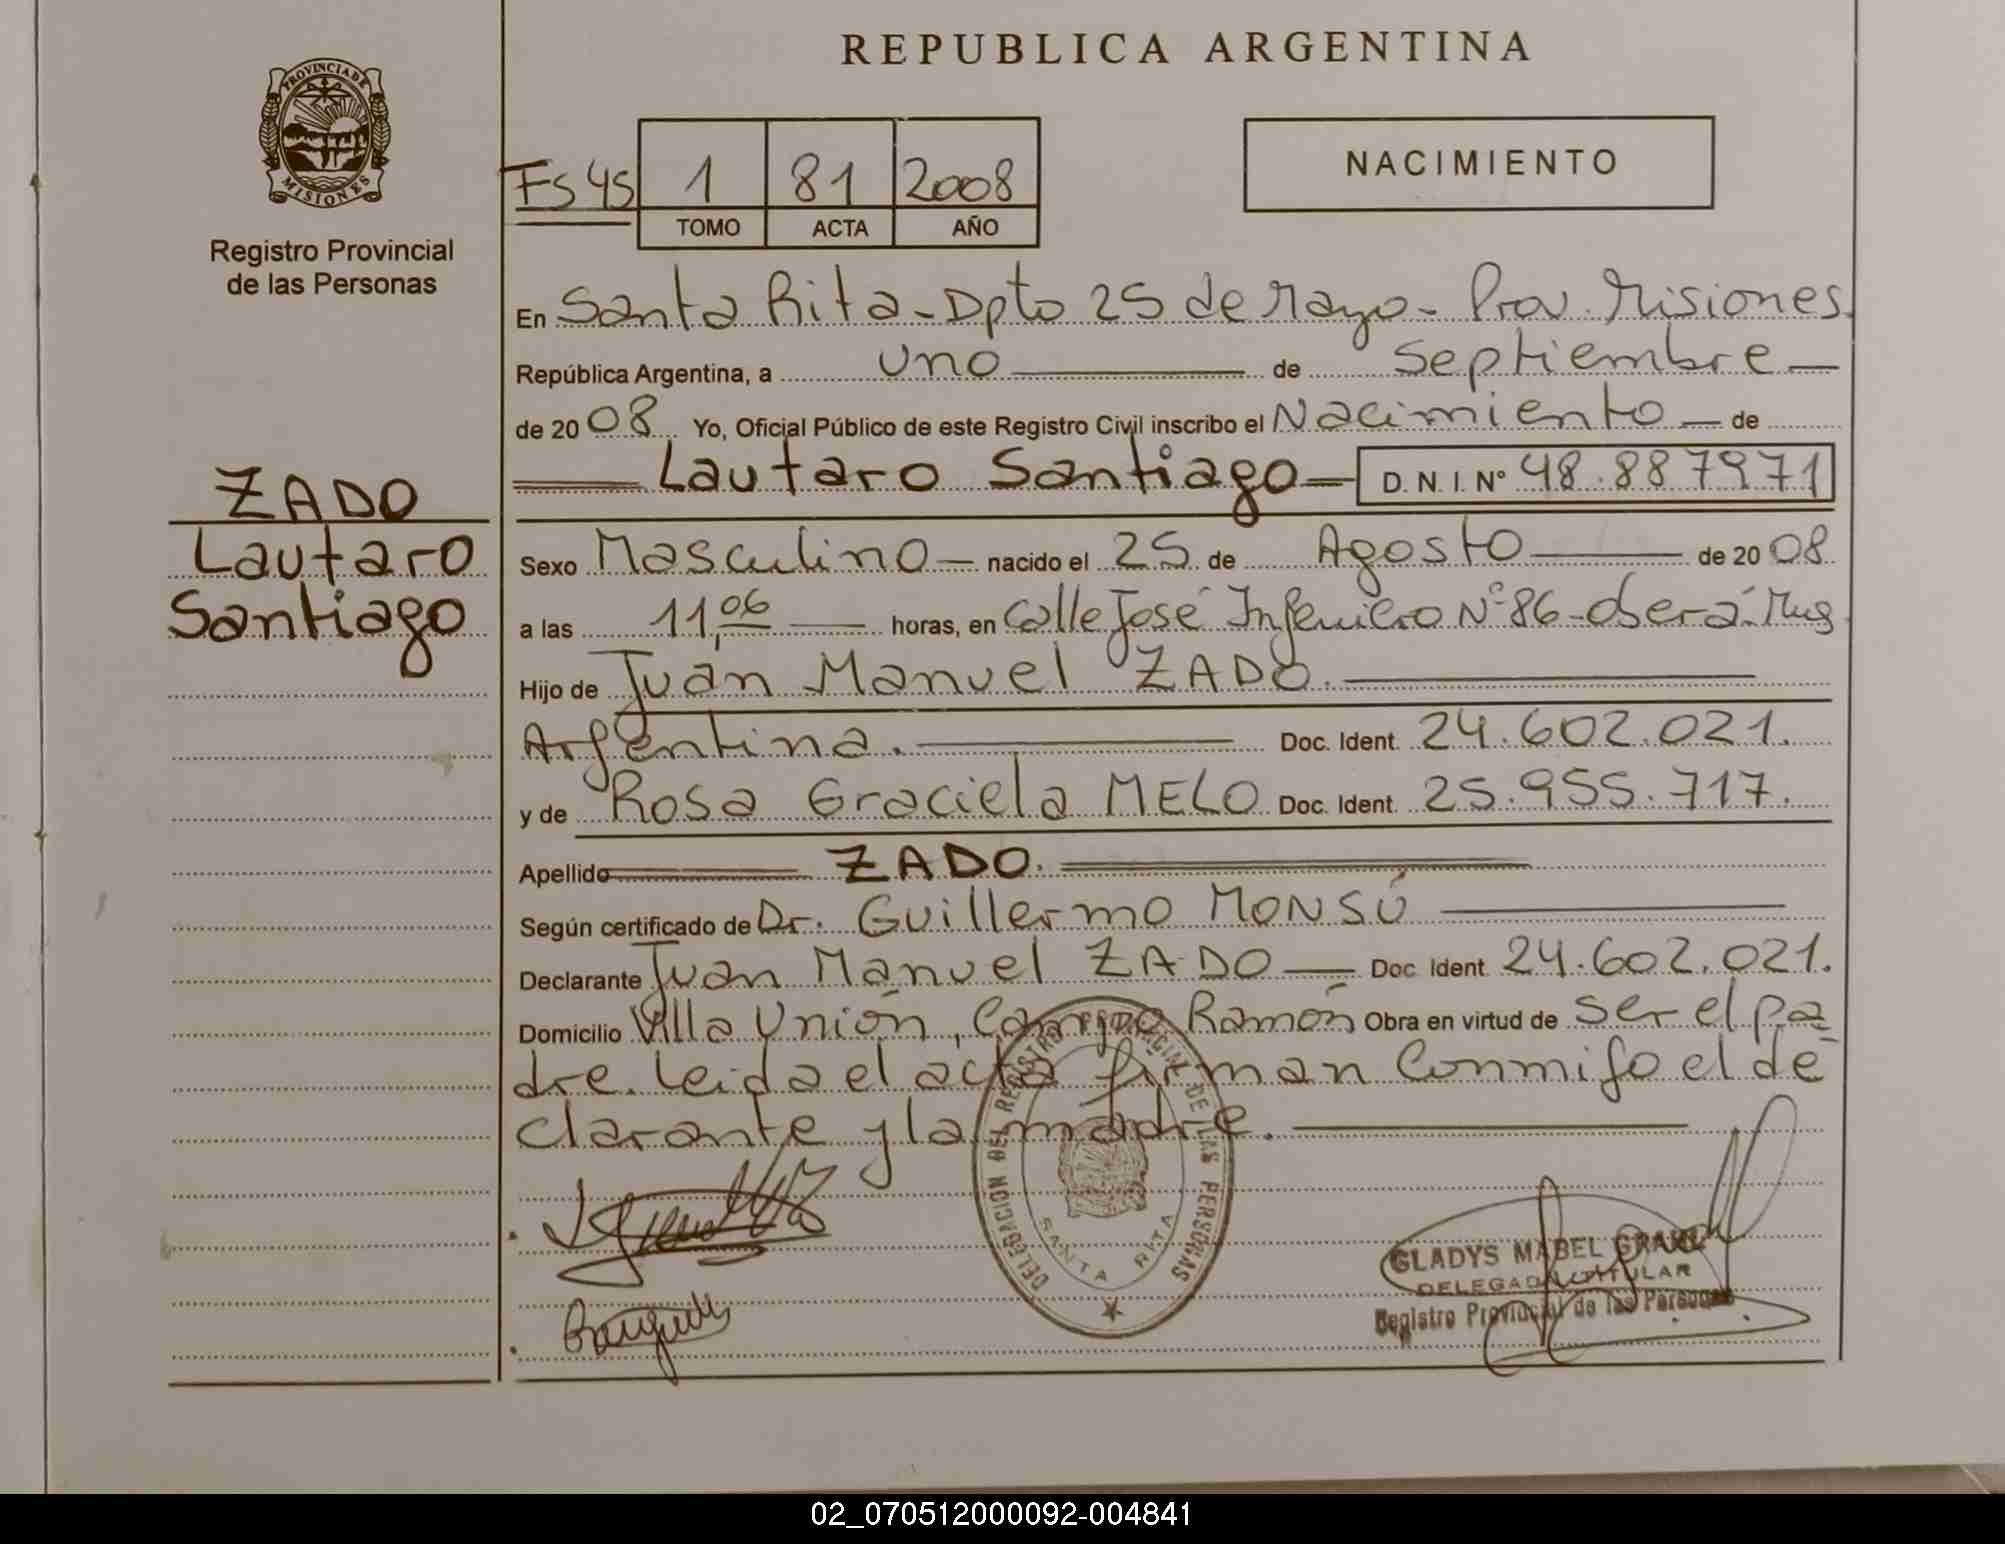 REPUBLICA ARGENTINA
PROVINCIA DE
MISIONES
Registro Provincial
de las Personas
NACIMIENTO
Fs 45 1 81 2008
TOMO ACTA AÑO
En Santa Rita - Dpto 25 de Mayo - Prov. Misiones
República Argentina, a uno de Septiembre
de 2008 Yo, Oficial Público de este Registro Civil inscribo el Nacimiento de
Lautaro Santiago D.N.I. Nº 48.887971
ZADO
Lautaro
Santiago
Sexo Masculino nacido el 25 de Agosto de 2008
a las 11,06 horas, en Calle José Ingeniero Nº 86 - Oberá
Hijo de Juan Manuel ZADO.
Argentina. Doc. Ident. 24.602.021.
y de Rosa Graciela MELO Doc. Ident. 25.955.717.
Apellido ZADO.
Según certificado de Dr. Guillermo MONSÚ
Declarante Juan Manuel ZADO Doc. Ident. 24.602.021.
Domicilio Villa Unión, Campo Ramón Obra en virtud de ser el pa
dre. Leida el acta firman conmigo el de
clarante y la madre.
DELEGACION DEL REGISTRO PROVINCIAL DE LAS PERSONAS
SANTA RITA
GLADYS MABEL
DELEGADA TITULAR
Registro Provincial de las Personas
02_070512000092-004841